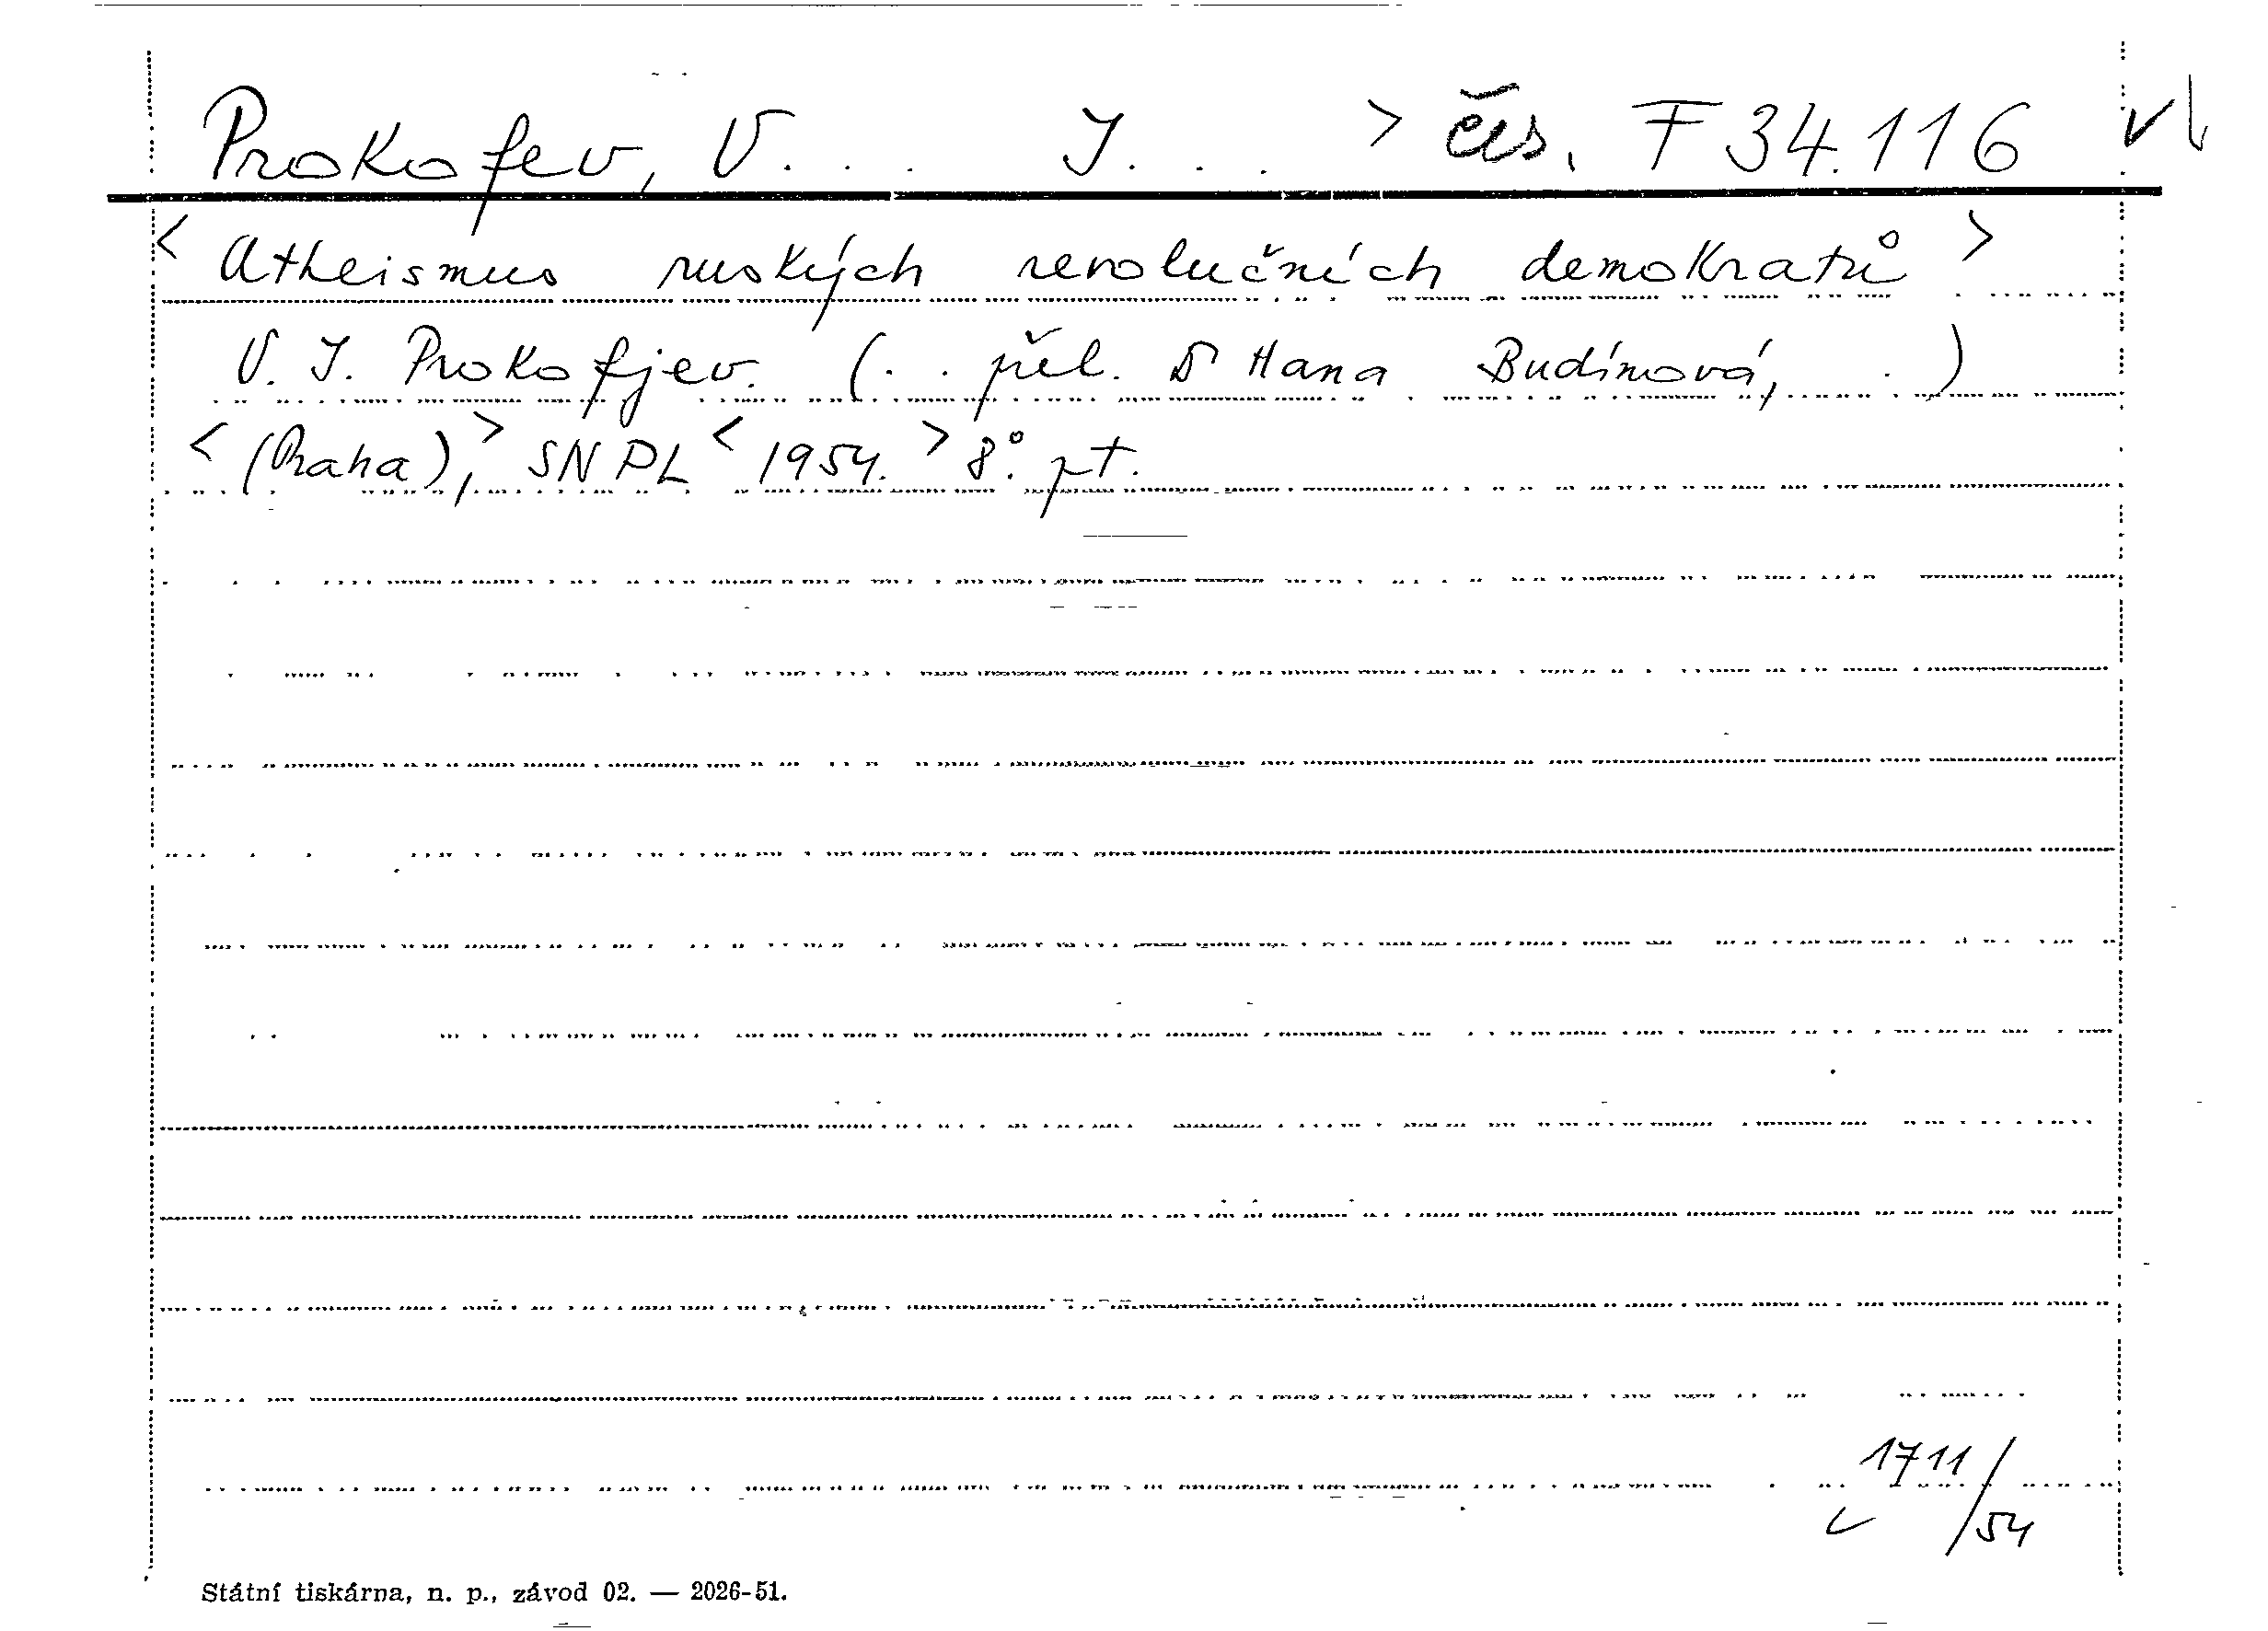 Prokofev, V. . . J. . . > čes. F 34.116
< Atheismus ruských revolučních demokratů >
V. J. Prokofjev. (. . přel. Dr Hana Budínová, . )
< (Praha), > SNPL < 1954. > 8°. pt.
1711/54
Státní tiskárna, n. p., závod 02. — 2026-51.